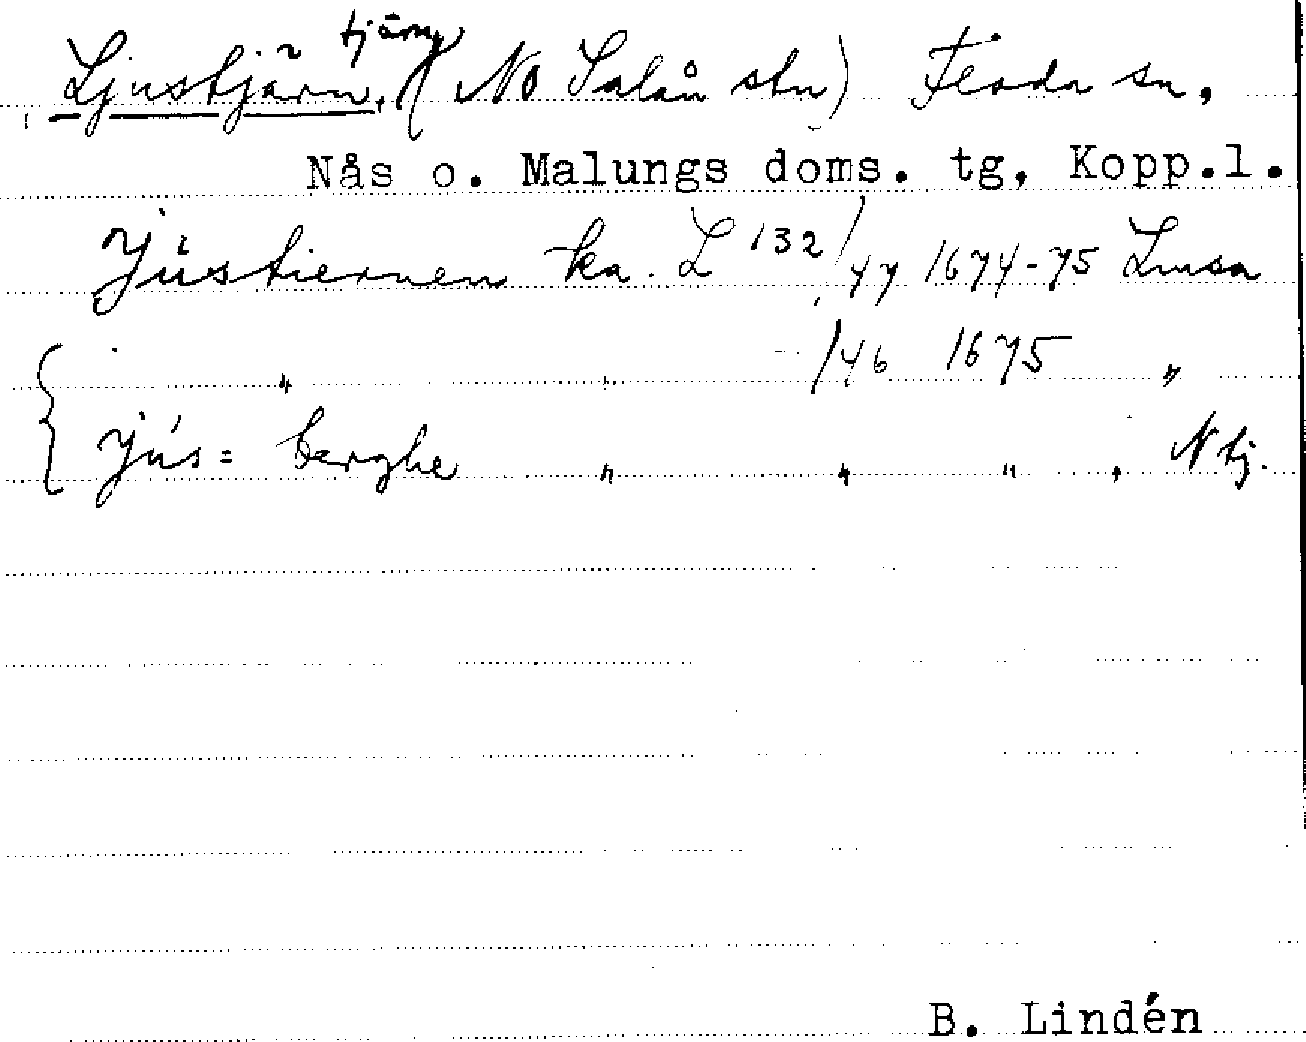 tjärn
Ljustjärn, (NO Salån stn) Floda sn,
Nås o. Malungs doms. tg, Kopp.l.
Jüstiernen ka. L 132/47 1674-75 Linsa
{ " " /46 1675 "
Jús= berghe " " " , N tj.
B. Lindén